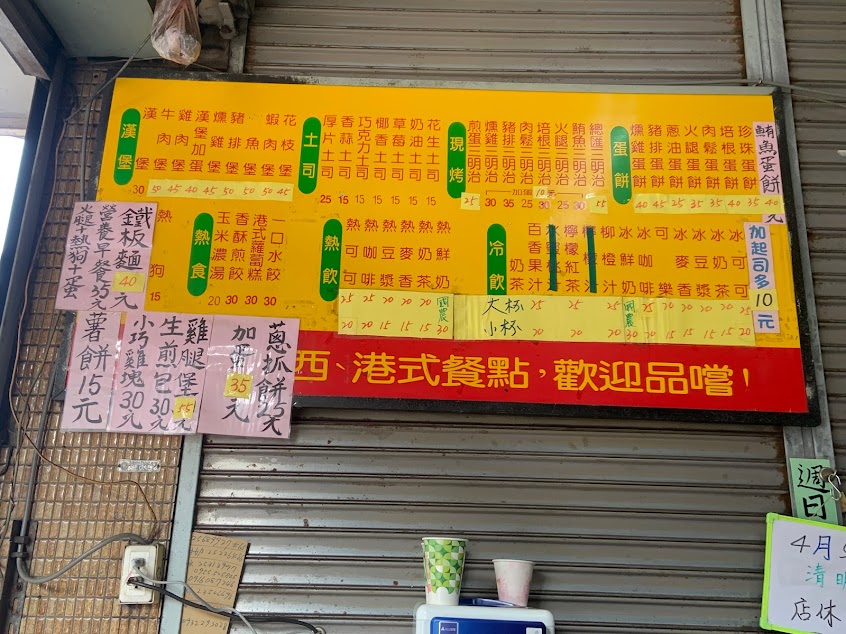 漢堡
漢 堡 30
牛肉堡 50
雞肉堡 45
漢堡加蛋 40
燻雞堡 45
豬排堡 50
魚堡 50
蝦肉堡 50
花枝堡 45
土司
厚片土司 25
香蒜土司 15
巧克力土司
椰香土司 15
草莓土司 15
奶油土司 15
花生土司 15
現烤
煎蛋三明治 25
燻雞三明治 30
豬排三明治 35
肉鬆三明治
培根三明治
火腿三明治
鮪魚三明治
總匯三明治 55
加蛋10元
蛋餅
蛋餅
燻雞蛋餅 40
豬排蛋餅 45
蔥油蛋餅 25
火腿蛋餅 35
肉鬆蛋餅 35
培根蛋餅 40
珍珠蛋餅 35
鮪魚蛋餅 40元
加起司多10元
熱狗 15
熱食
玉米濃湯 20
香酥煎餃 30
港式蘿蔔糕 30
一口水餃 30
熱飲
熱可可
熱咖啡
熱豆漿
熱麥香
熱奶茶
熱鮮奶
25 25 20 20 20 國農
20 20 15 15 15 30
冷飲
奶茶
百香果汁
水蜜桃汁
檸檬紅茶
柳橙汁
冰鮮奶
冰咖啡
可樂
冰麥香
冰豆漿
冰奶茶
冰可可
大杯 25 25 25 國農 25 20 20 20 25
小杯 20 20 20 30 20 15 15 15 20
西、港式餐點，歡迎品嚐！
鐵板麵40元
營養早餐55元
火腿+熱狗+蛋
薯餅15元
小巧雞塊30元
生煎包30元
雞腿堡55元
加蛋35元
蔥抓餅25元
週日
4月
清明
店休